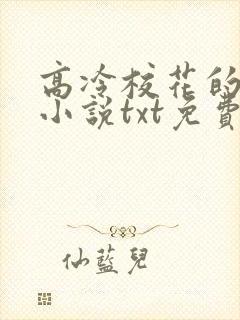 高冷校花的
小說txt免費
仙藍兒